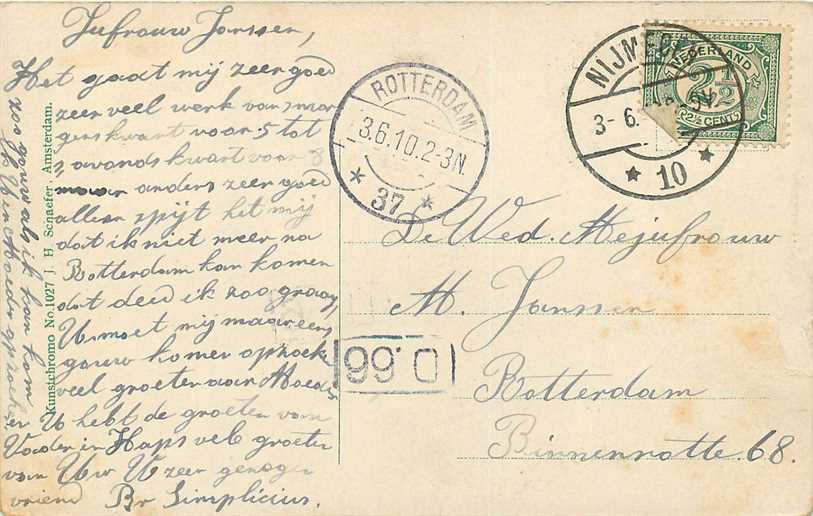 Jufrouw Janssen,
Het gaat mij zeer goed
zeer veel werk van smor
gens kwart voor 5 tot
s'avonds kwart voor 8
maar anders zeer goed
alleen spijt het mij
dat ik niet meer na
Rotterdam kan komen
dat deed ik zoo graag
U moet mij maar eens
gauw komen opzoeke
veel groeten aan Moeder
en U hebt de groeten van
Vader in Haps vele groeten
van Uw U zeer genegen
vriend Br Simplicius.
zoo gauw als ik kan kom
ik U en Moeder opzoeken
Kunstchromo No. 1027 J. H. Schaefer. Amsterdam.
ROTTERDAM
3.6.10.2-3N.
* 37 *
NIJMEG
3-6.
* 10 *
NEDERLAND
2½
2½ CENT
De Wed. Mejufrouw
M. Janssen
Rotterdam
Binnenrotte 68.
D.66